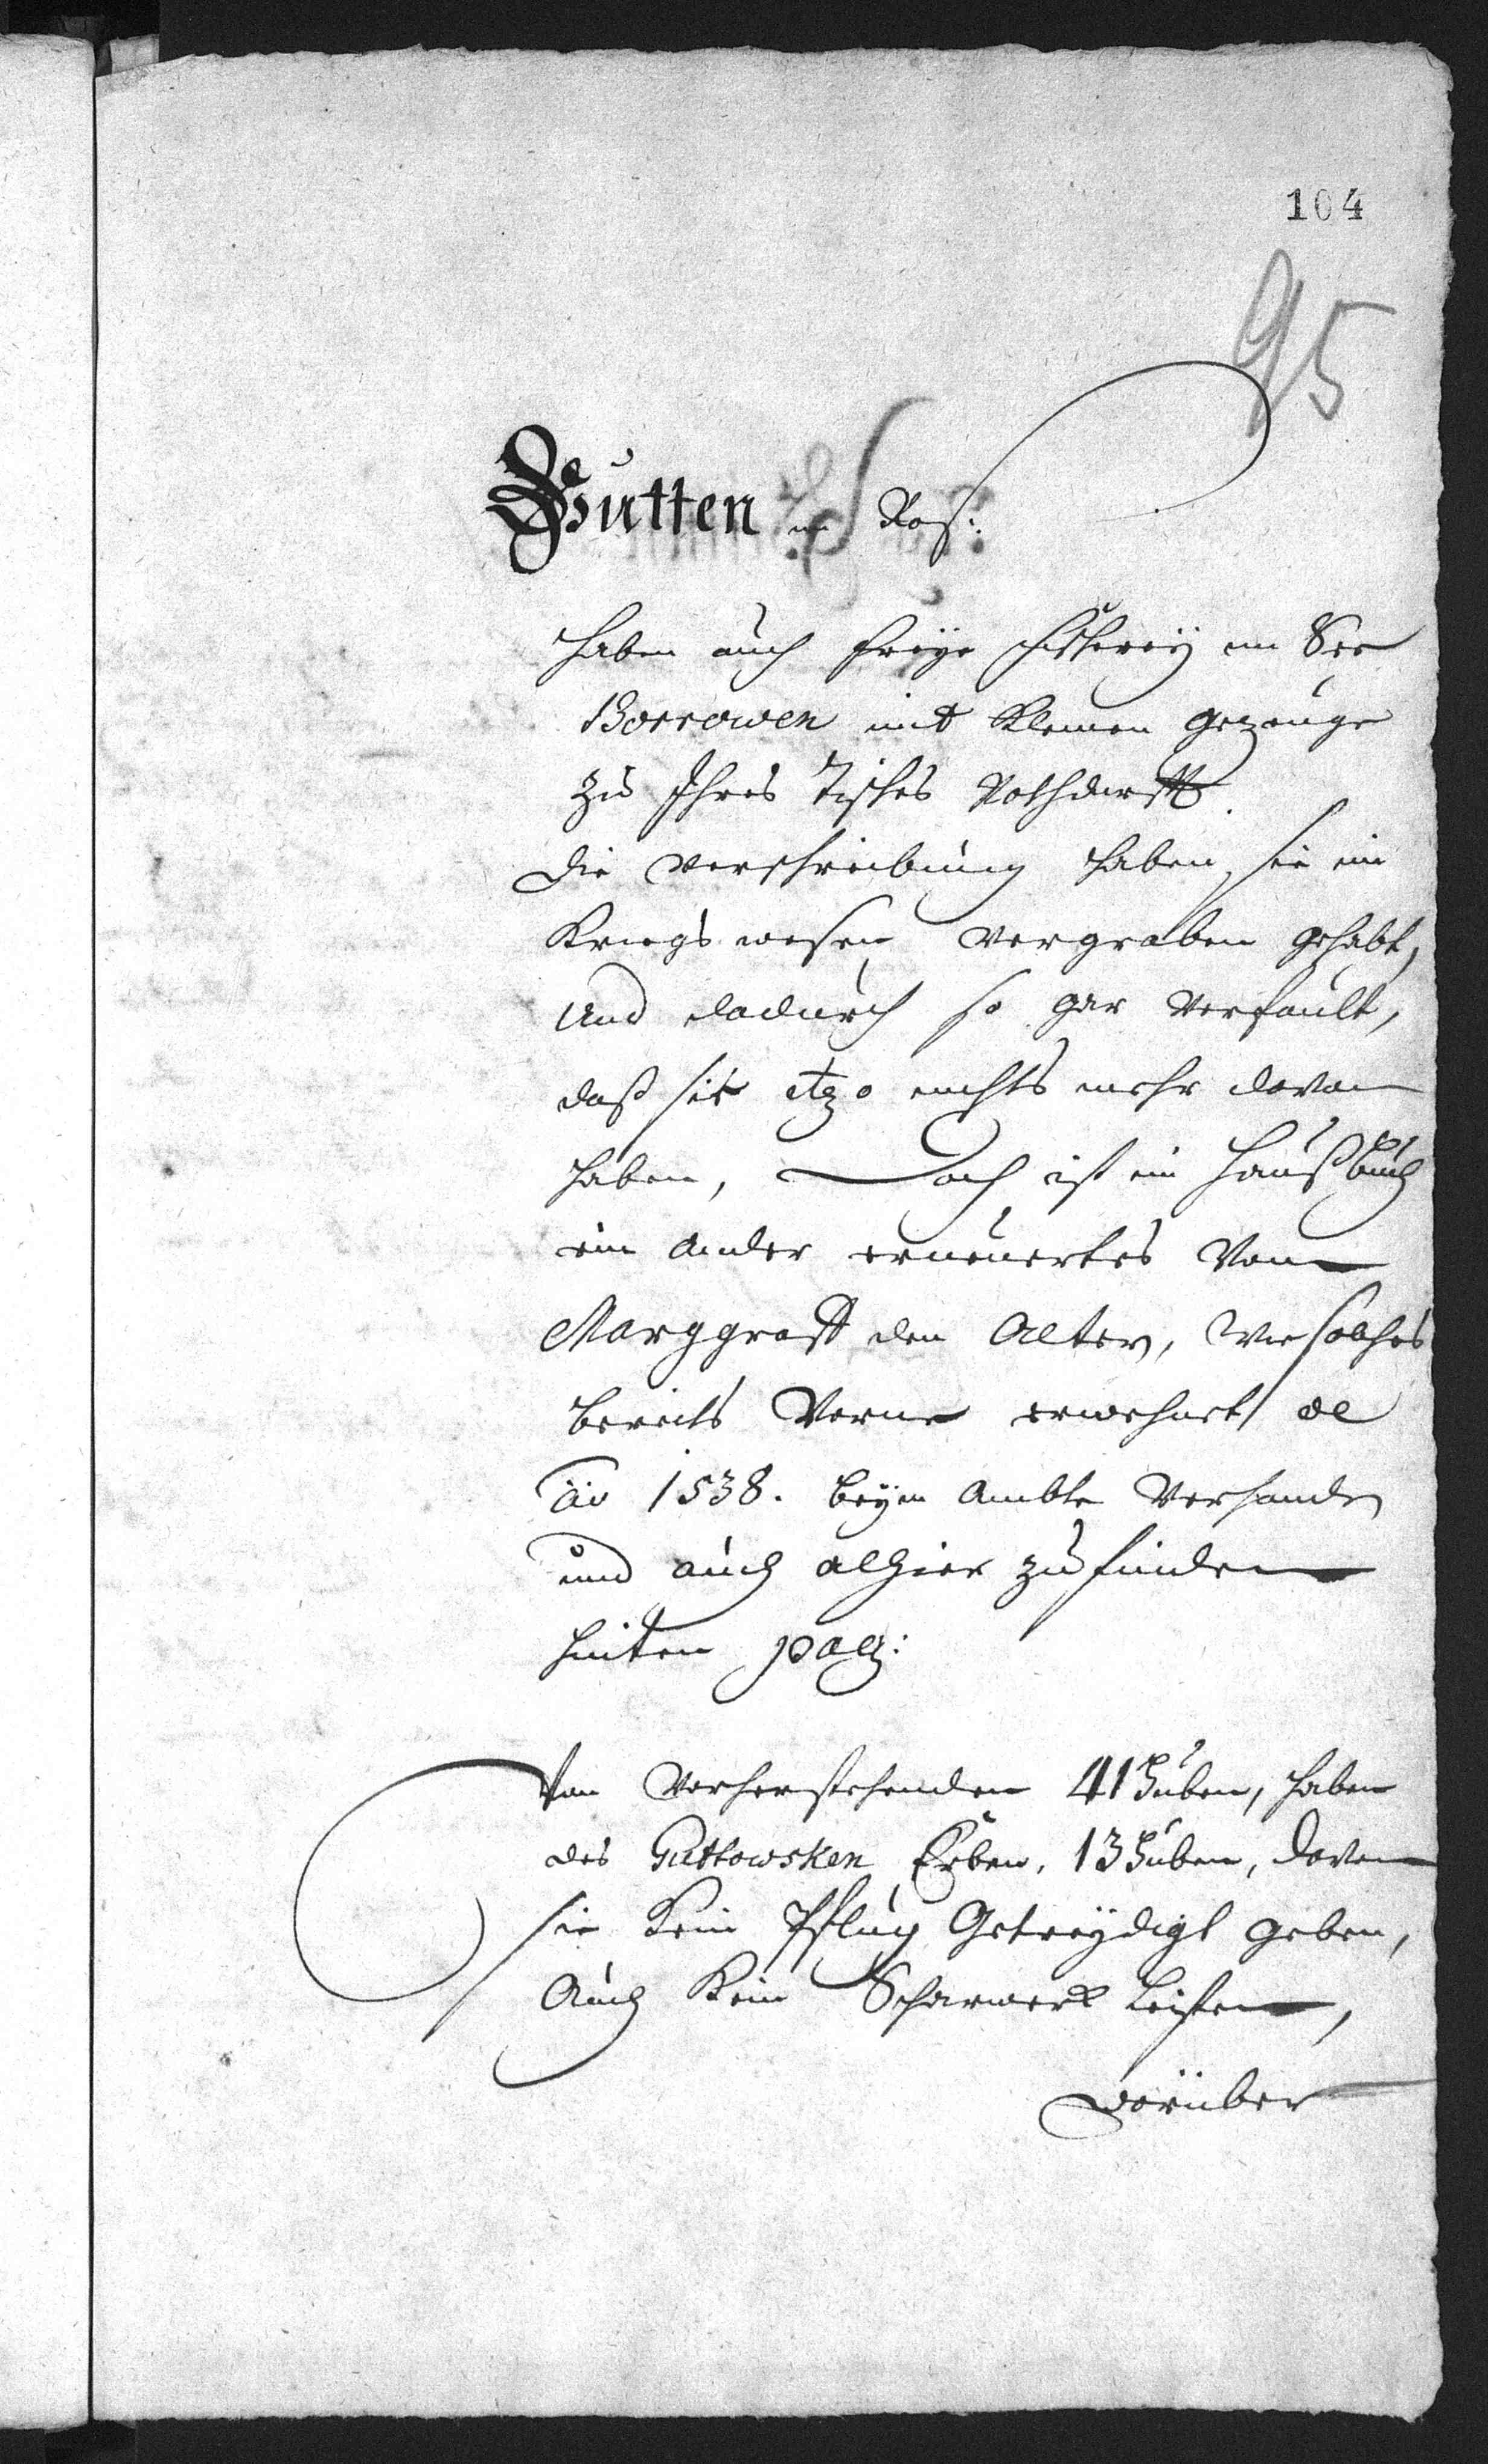 104
95
Gutten
haben auch freye fischerey im See
Borrowen mit kleinen gezeuge
zu Ihres Tisches Nothdurfft.
Die verschreibung haben sie im
Kriegs wesen vergraben gehabt,
Und dadurch so gar verfault,
daß sie itzo nichts mehr davon
haben, Doch ist im Haußbuch
ein ander erneuertes Vom
Marggraff den Alter, wie solches
bereits Vorne erwehnet de
ão 1538. beym Ambte Verhanden
und auch alhier zu finden
hinten pag:
Von Vorherstehenden 41 Huben, haben
des Guttowsken Erben, 13 Huben, davon
sie kein Pflug Getreydigt geben,
Auch kein Scharwerk leisten,
Dorüber